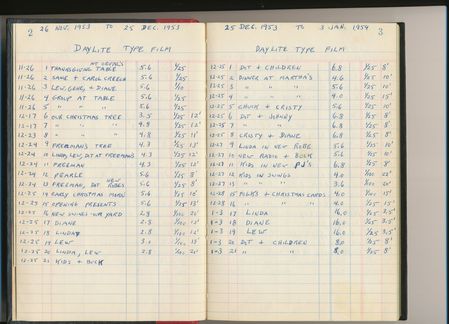 2 26 NOV. 1953 TO 25 DEC. 1953
DAYLITE TYPE FILM
AT ORVAL'S
11-26 1 THANKSGIVING TABLE 5.6 1/25
11-26 2 SAME + CAROL CREECH 5.6 1/25
11-26 3 LEW, GENE, + DIANE 5.6 1/10
11-26 4 GROUP AT TABLE 5.6 1/25
11-26 5 " " " 5.6 1/25
12-17 6 OUR CHRISTMAS TREE 3.5 1/25 12'
12-17 7 " " " 4.8 1/25 12'
12-23 8 " " " 4.8 1/25 11'
12-24 9 FREEMAN'S TREE 4.3 1/25 13'
12-24 10 LINDA, LEW, DOT AT FREEMAN'S 4.3 1/25 12'
12-24 11 FREEMAN 4.3 1/25 12'
12-24 12 PEARLE 5.6 1/25 8'
NEW
12-24 13 FREEMAN, DOT ROBES 5.6 1/25 8'
12-25 14 EARLY CHRISTMAS MORN. 5.6 1/25 10'
12-25 15 OPENING PRESENTS 5.6 1/25 13'
12-25 16 NEW SWINGS OUR YARD 2.8 1/100 20'
12-25 17 DIANE 2.8 1/100 12'
12-25 18 LINDA 2.8 1/100 12'
12-25 19 LEW 3.0 1/100 15'
12-25 20 LINDA, LEW 2.8 20'
12-25 21 KIDS + BUCK
25 DEC. 1953 TO 3 JAN. 1954 3
DAYLITE TYPE FILM
12-25 1 DOT + CHILDREN 6.8 1/25 8'
12-25 2 DINNER AT MARTHA'S 4.6 1/25 10'
12-25 3 " " " 5.6 1/25 10'
12-25 4 " " " 4.0 1/25 15'
12-25 5 CHUCK + CRISTY 5.6 1/25 10'
12-25 6 DOT + JOHNNY 6.8 1/25 8'
12-25 7 " " 6.8 1/25 8'
12-25 8 CRISTY + DIANE 6.8 1/25 8'
12-27 9 LINDA IN NEW ROBE 5.6 1/25 10'
12-27 10 NEW RADIO + BUCK 5.6 10'
12-27 11 KIDS IN NEW PJ'S 6.8 1/25 8'
12-27 12 KIDS IN SWINGS 4.0 1/100 20'
12-27 13 " " " 3.6 1/100 20'
12-28 15 FOLK'S + CHRISTMAS CARDS 4.0 1/100 15'
12-28 16 " " 4.0 1/25 15'
1-3 17 LINDA 16.0 1/25 2.5'
1-3 18 DIANE 16.0 1/25 3.5'
1-3 19 LEW 16.0 1/25 3.5'
1-3 20 DOT + CHILDREN 8.0 1/25 8'
1-3 21 " " 8.0 1/25 8'